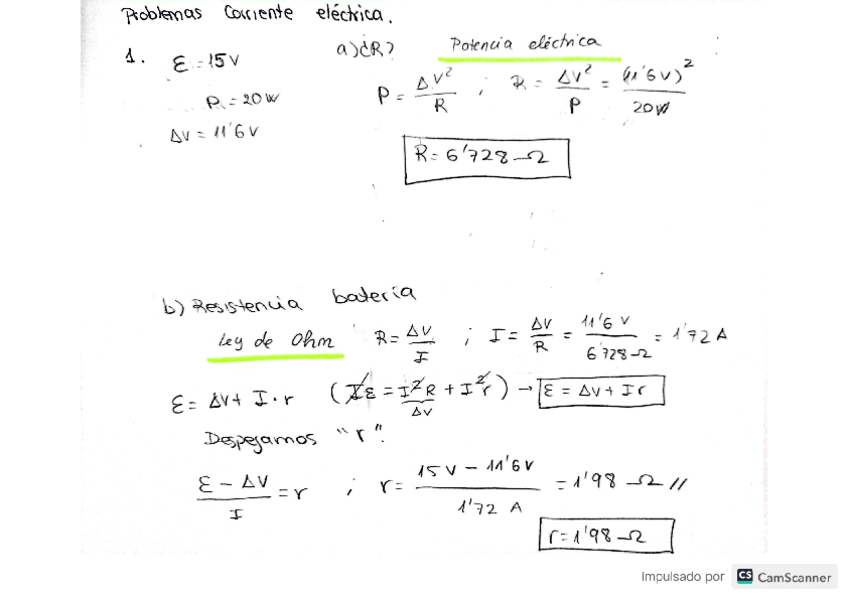 Problemas Corriente eléctrica.
1. ε = 15 V a) ¿R? Potencia eléctrica
P = 20 W P = ΔV²/R ; R = ΔV²/P = (11'6 V)²/20 W
ΔV = 11'6 V
R = 6'728 Ω
b) Resistencia batería
Ley de Ohm R = ΔV/I ; I = ΔV/R = 11'6 V/6'728 Ω = 1'72 A
ε = ΔV + I·r (Iε = I²R + I²r) → ε = ΔV + Ir
ΔV
Despejamos "r".
(ε - ΔV)/I = r ; r = (15 V - 11'6 V)/1'72 A = 1'98 Ω //
r = 1'98 Ω
Impulsado por CS CamScanner